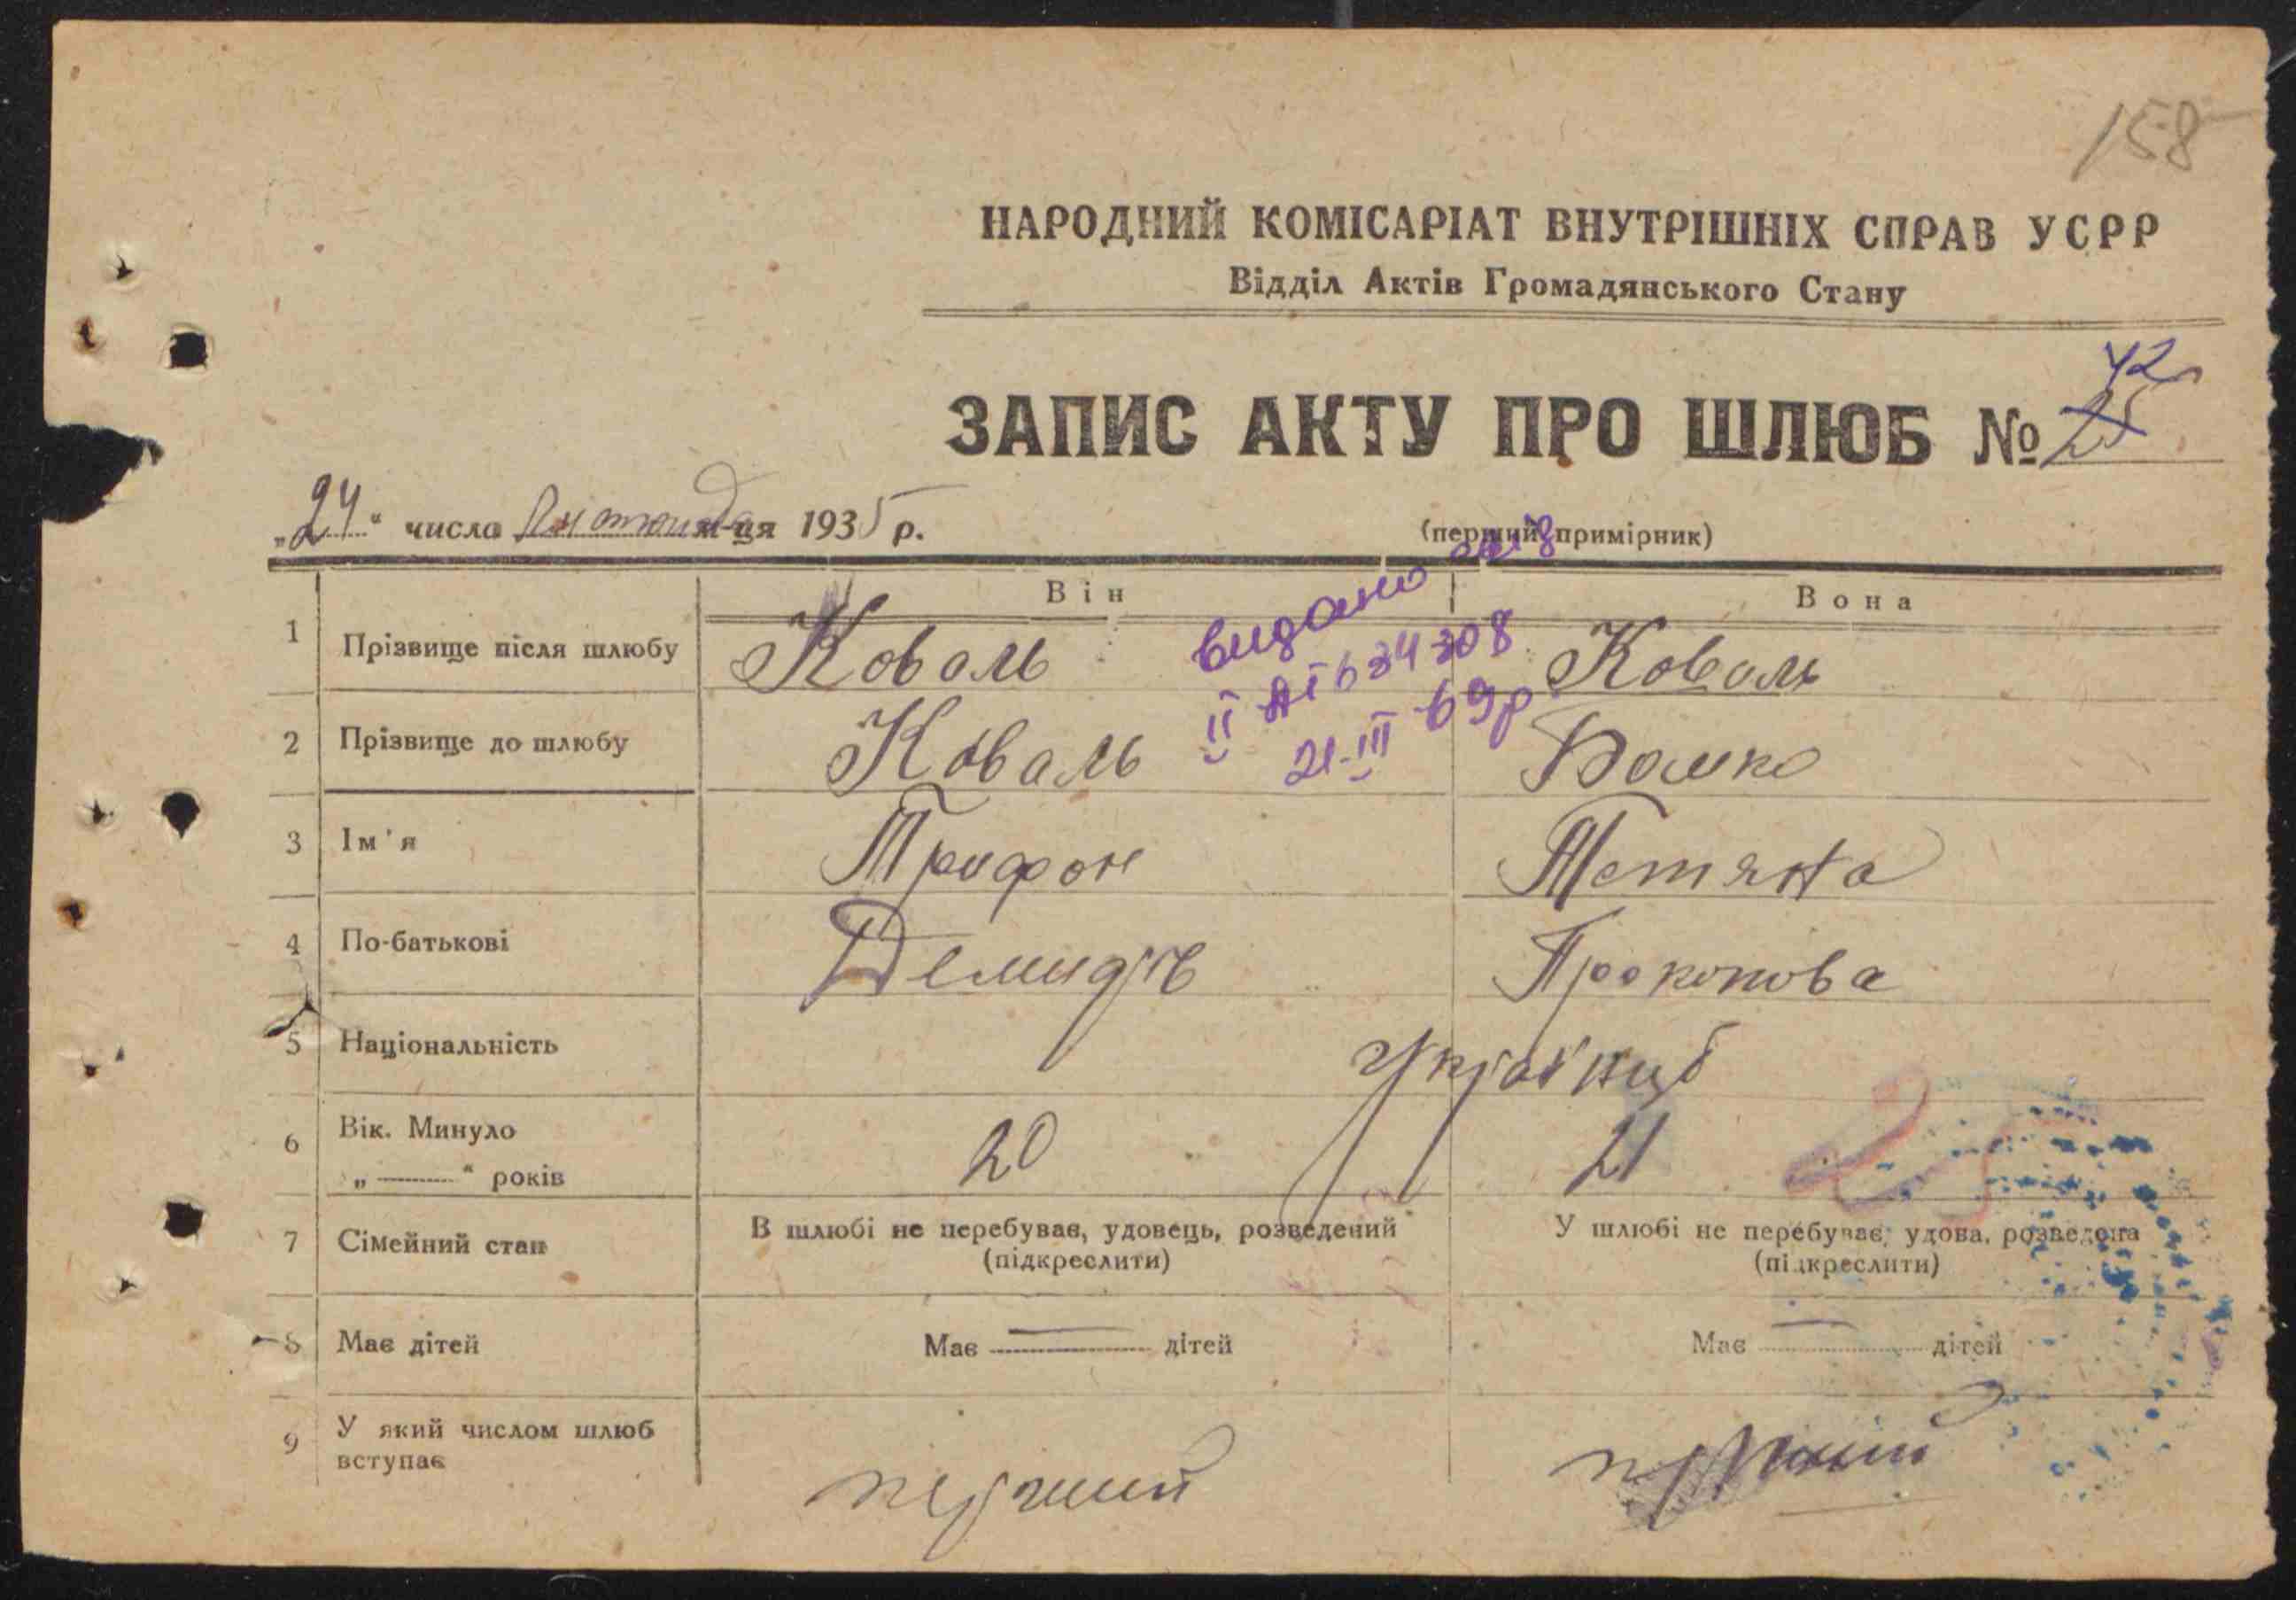 158
НАРОДНИЙ КОМІСАРІАТ ВНУТРІШНІХ СПРАВ УСРР
Відділ Актів Громадянського Стану
ЗАПИС АКТУ ПРО ШЛЮБ № 25
42
„24“ числа Листопада м-ця 1935 р.
(перший примірник)
Він Вона
видано
II АІ 634308
21-III 69р
1 Прізвище після шлюбу Коваль Коваль
2 Прізвище до шлюбу Коваль
3 Ім'я Трифон Тетяна
4 По-батькові Демидів Прокопова
5 Національність Українці
6 Вік. Минуло 20 21
„ “ років
7 Сімейний стан В шлюбі не перебував, удовець, розведений У шлюбі не перебуває, удова, розведена
(підкреслити) (підкреслити)
8 Має дітей Має — дітей Має — дітей
9 У який числом шлюб перший перший
вступає